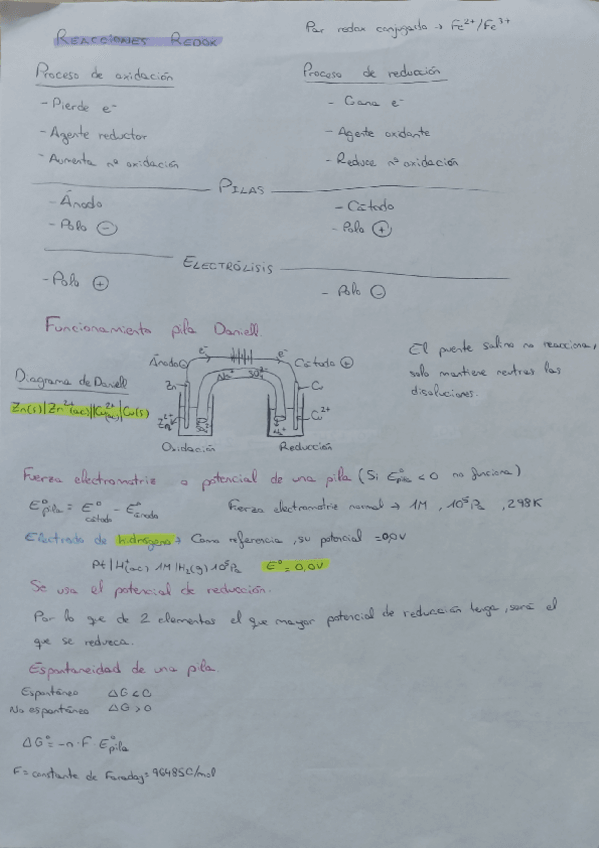 Par redox conjugado → Fe²⁺/Fe³⁺
REACCIONES REDOX
Proceso de oxidación
Proceso de reducción
- Pierde e⁻
- Gana e⁻
- Agente reductor
- Agente oxidante
- Aumenta nº oxidación
- Reduce nº oxidación
PILAS
- Ánodo
- Cátodo
- Polo ⊖
- Polo ⊕
ELECTRÓLISIS
- Polo ⊕
- Polo ⊖
Funcionamiento pila Daniell.
El puente salino no reacciona,
solo mantiene neutras las
disoluciones.
e⁻ e⁻
Ánodo ⊖ Cátodo ⊕
Na⁺ SO₄²⁻
Diagrama de Daniell
Zn Cu
Zn(s)|Zn²⁺(ac)||Cu²⁺(ac)|Cu(s)
Zn²⁺ Cu²⁺
Oxidación Reducción
Fuerza electromotriz o potencial de una pila (Si E°pila < 0 no funciona)
E°pila = E°cátodo - E°ánodo
Fuerza electromotriz normal → 1M, 10⁵Pa, 298K
Electrodo de hidrógeno → Como referencia, su potencial = 0,0V
Pt|H⁺(ac) 1M|H₂(g) 10⁵Pa E° = 0,0V
Se usa el potencial de reducción.
Por lo que de 2 elementos el que mayor potencial de reducción tenga, será el
que se reduzca.
Espontaneidad de una pila.
Espontáneo ΔG < 0
No espontáneo ΔG > 0
ΔG° = -n·F·E°pila
F = constante de Faraday = 96485C/mol